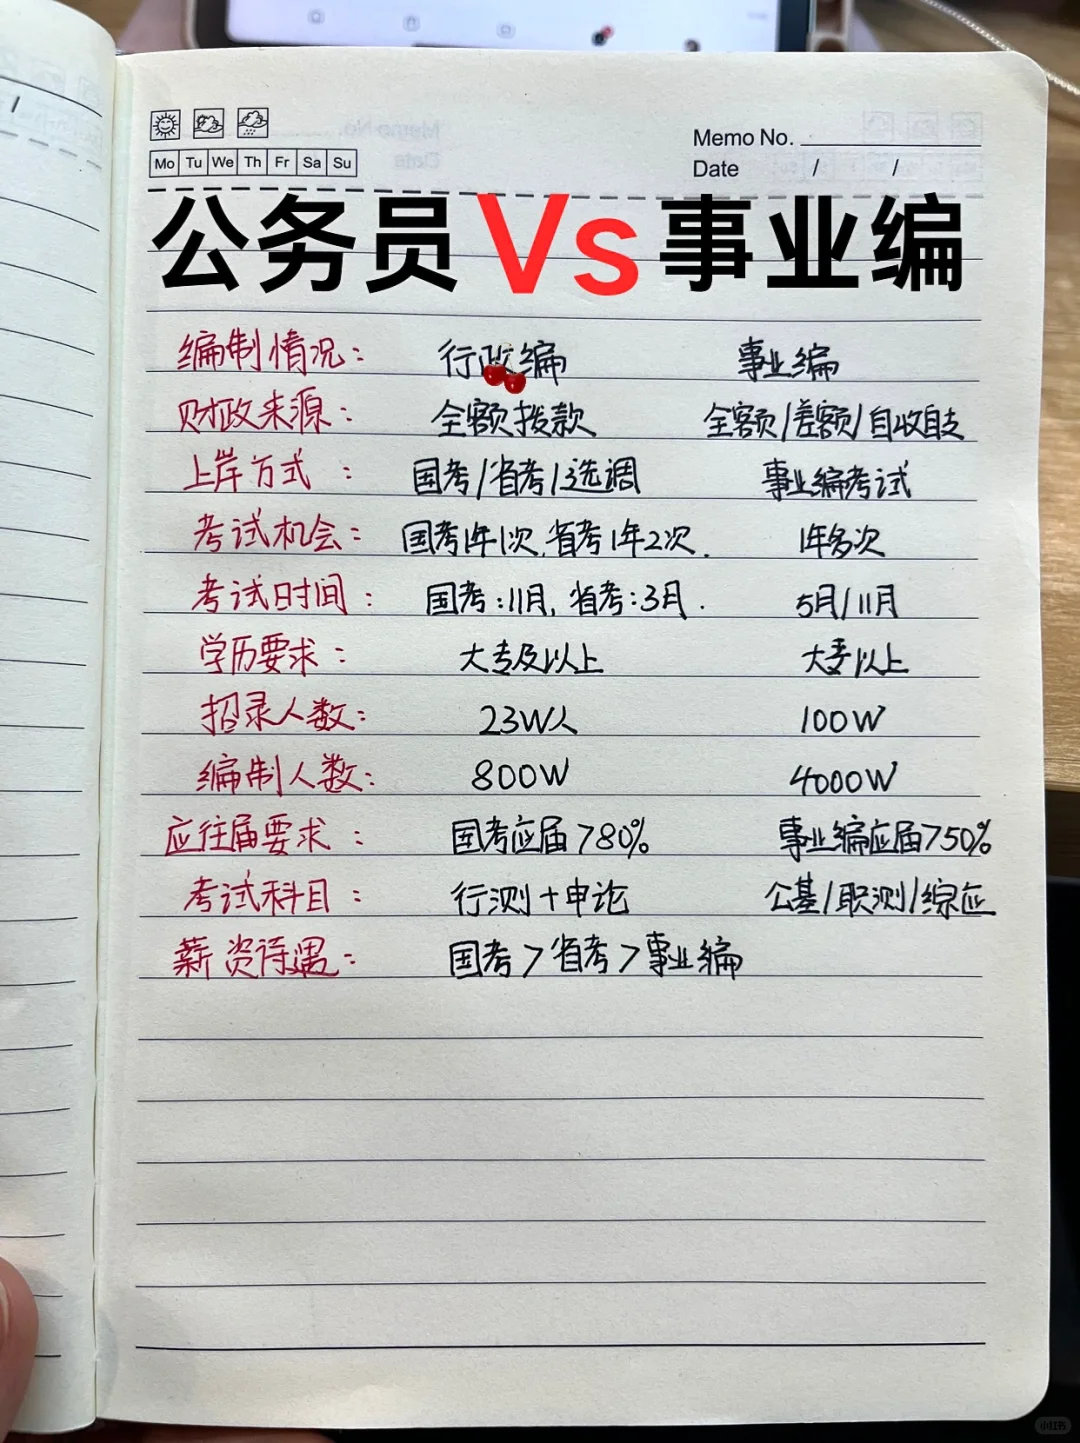 Memo No.
Mo Tu We Th Fr Sa Su
Date / /
公务员 Vs 事业编
编制情况： 行政编 事业编
财政来源： 全额拨款 全额/差额/自收自支
上岸方式： 国考/省考/选调 事业编考试
考试机会： 国考1年1次,省考1年2次. 1年多次
考试时间： 国考:11月, 省考:3月. 5月/11月
学历要求： 大专及以上 大专以上
招录人数： 23W人 100W
编制人数： 800W 4000W
应往届要求： 国考应届>80% 事业编应届>50%
考试科目： 行测+申论 公基/职测/综应
薪资待遇： 国考>省考>事业编
小红书